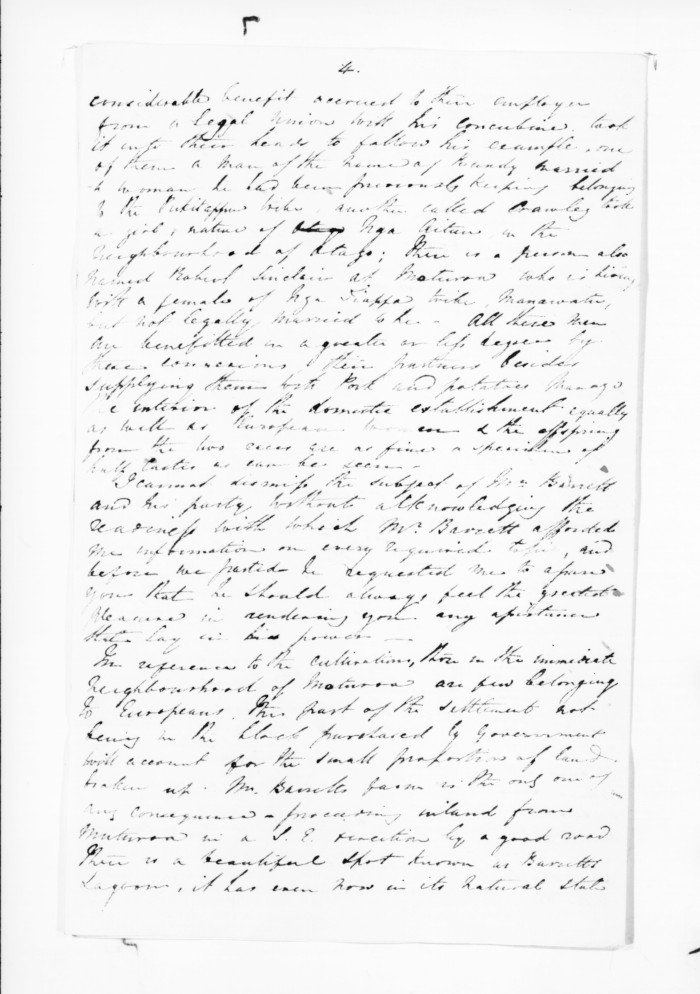 4.
considerable benefit accrued to their employer
from a legal union with his concubine, took
it into their heads to follow his example, one
of them a man of the name of Bundy married
a woman he had been previously keeping belonging
to the Puketappu tribe, another called Crawley took
a girl, native of Nga Aitu in the
neighbourhood of Otago; there is a person also
named Robert Sinclair at Moturoa who is living
with a female of Nga Tiappa tribe, Manawatu,
but not legally married to her - All these men
are benefitted in a greater or less degree by
these connexions, their partners besides
supplying them with Pork and potatoes manage
the interior of the domestic establishment equally
as well as European women & the offspring
from the two races are as fine a specimen of
half castes as can be seen -
I cannot dismiss the subject of Mr. Barrett
and his party, without acknowledging the
readiness with which Mr. Barrett afforded
me information on every required topic, and
before we parted he requested me to assure
you that he should always feel the greatest
pleasure in rendering you any assistance
that lay in his power -
In reference to the cultivations, those in the immediate
neighbourhood of Moturoa are few belonging
to Europeans. This part of the settlement not
being in the block purchased by Government
will account for the small proportion of land
broken up. Mr. Barretts farm is the only one of
any consequence - proceeding inland from
Muturoa in a S. E. direction by a good road
there is a beautiful spot known as Barretts
Lagoon, it has even now in its natural state